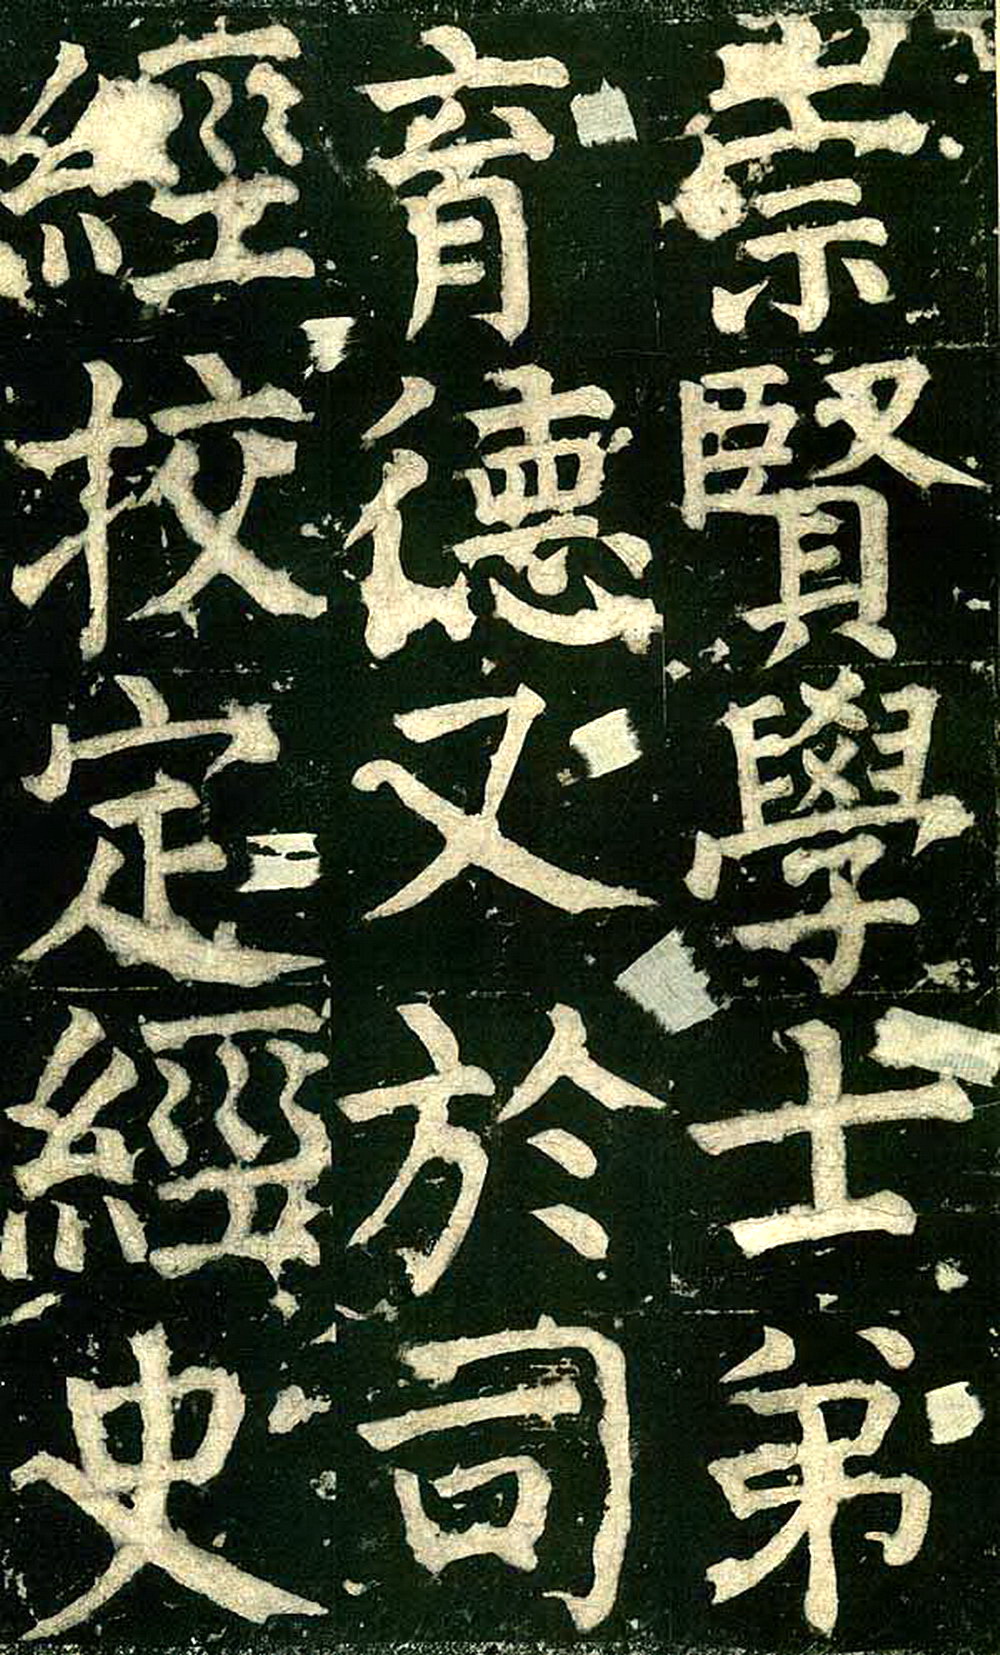 崇賢學士弟
育德又於司
經校定經史